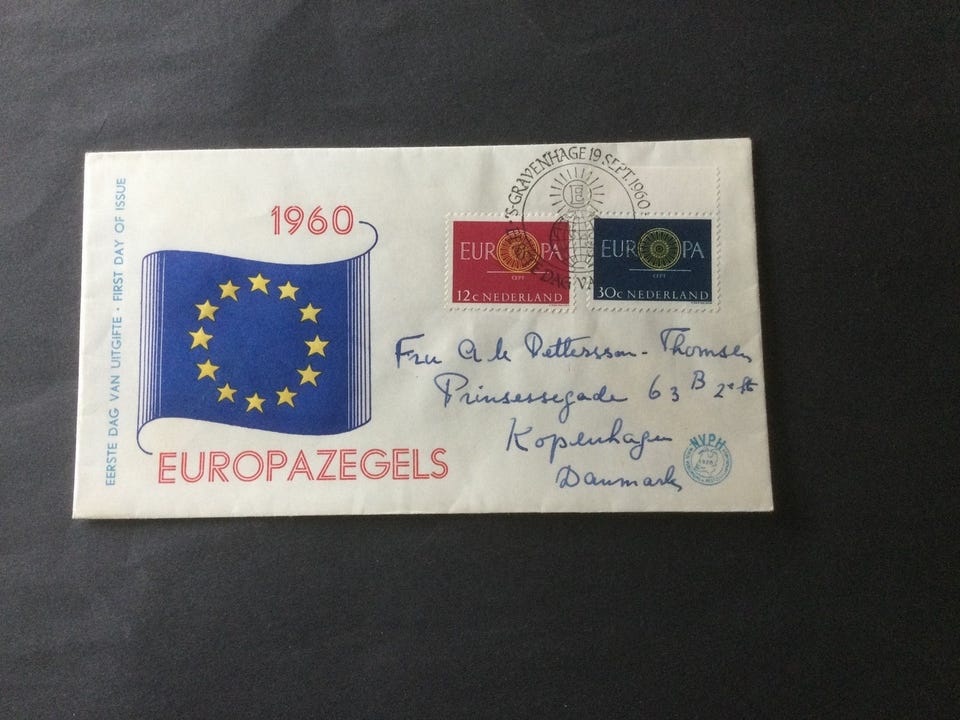 EERSTE DAG VAN UITGIFTE • FIRST DAY OF ISSUE
1960
EUROPAZEGELS
'S-GRAVENHAGE 19 SEPT. 1960
DAG VA
EUROPA
CEPT
12c NEDERLAND
EUROPA
CEPT
30c NEDERLAND
Fru A le Pettersson-Thomsen
Prinsessegade 63 B 2
Kopenhagen
Danmark
NVPH